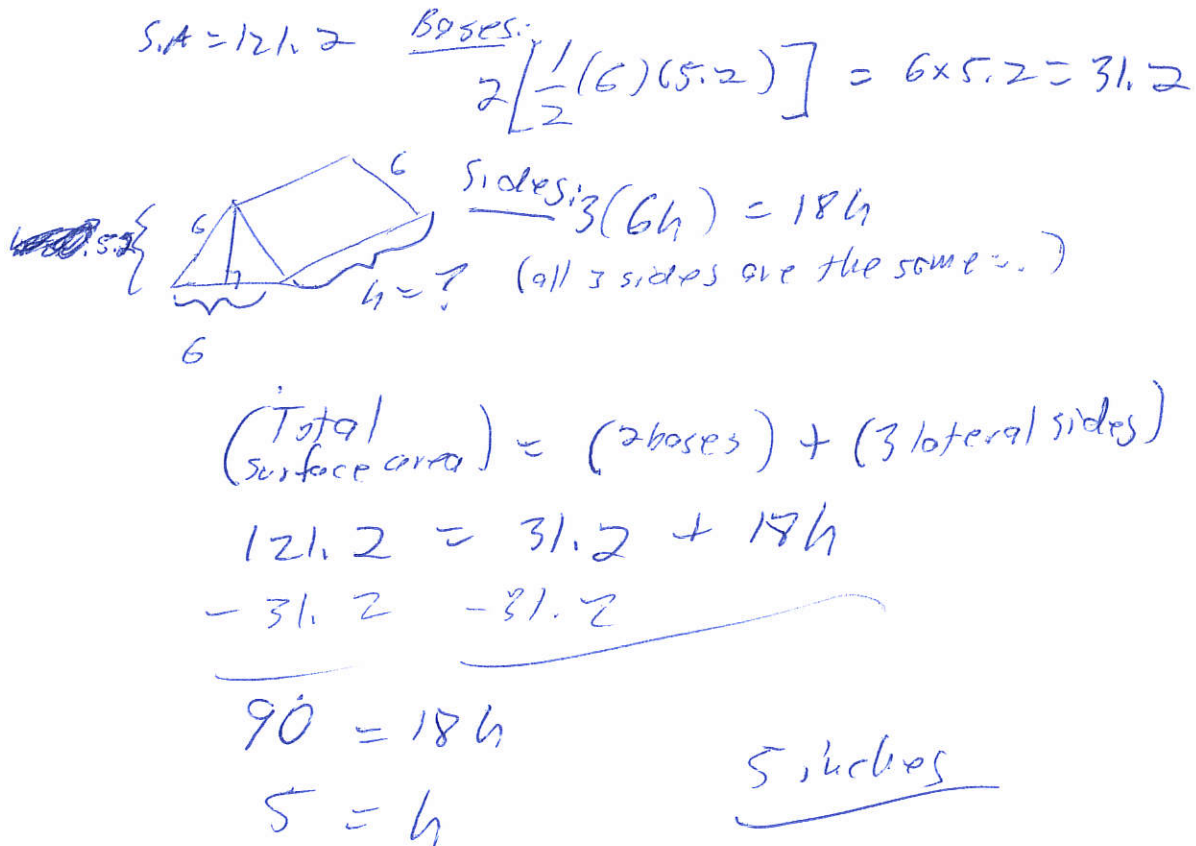 S.A = 121.2
Bases:
2[1/2 (6)(5.2)] = 6 x 5.2 = 31.2
Sides: 3(6h) = 18h
(all 3 sides are the same
6
6
5.2
h = ?
6
(Total surface area) = (2 bases) + (3 lateral sides)
121.2 = 31.2 + 18h
- 31.2 - 31.2
90 = 18h
5 = h
5 inches